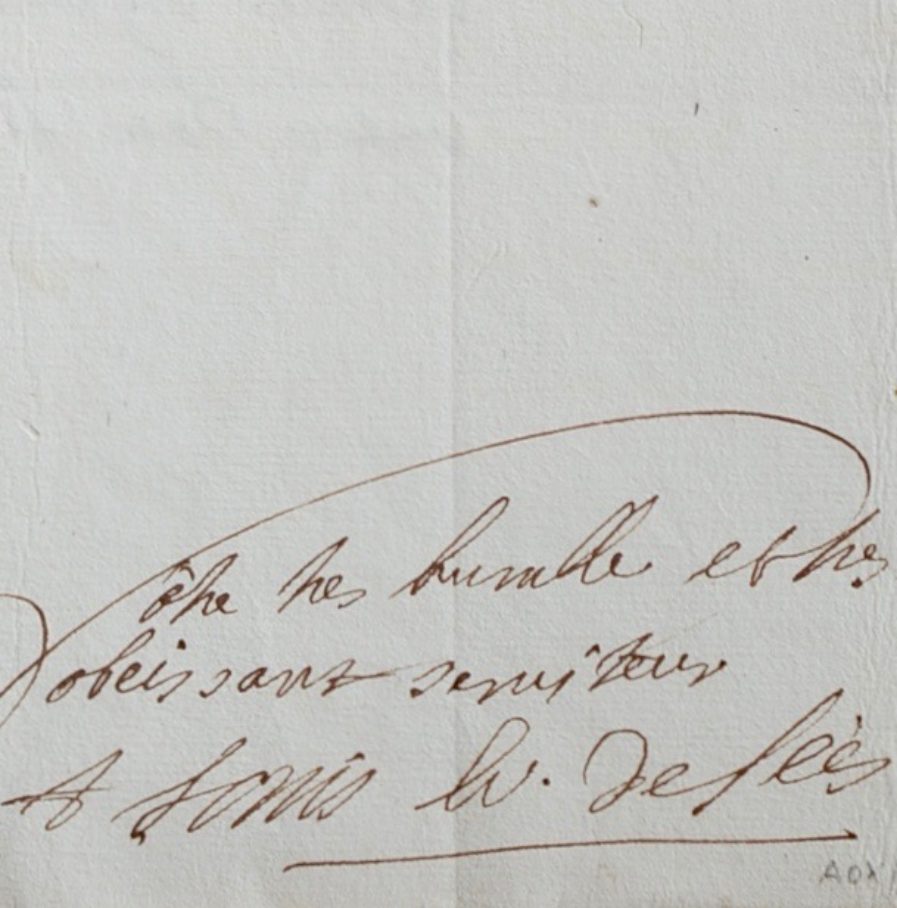 Vôtre tres humble et tres
obeissant serviteur
+ Louis Ev. de séés
AOX